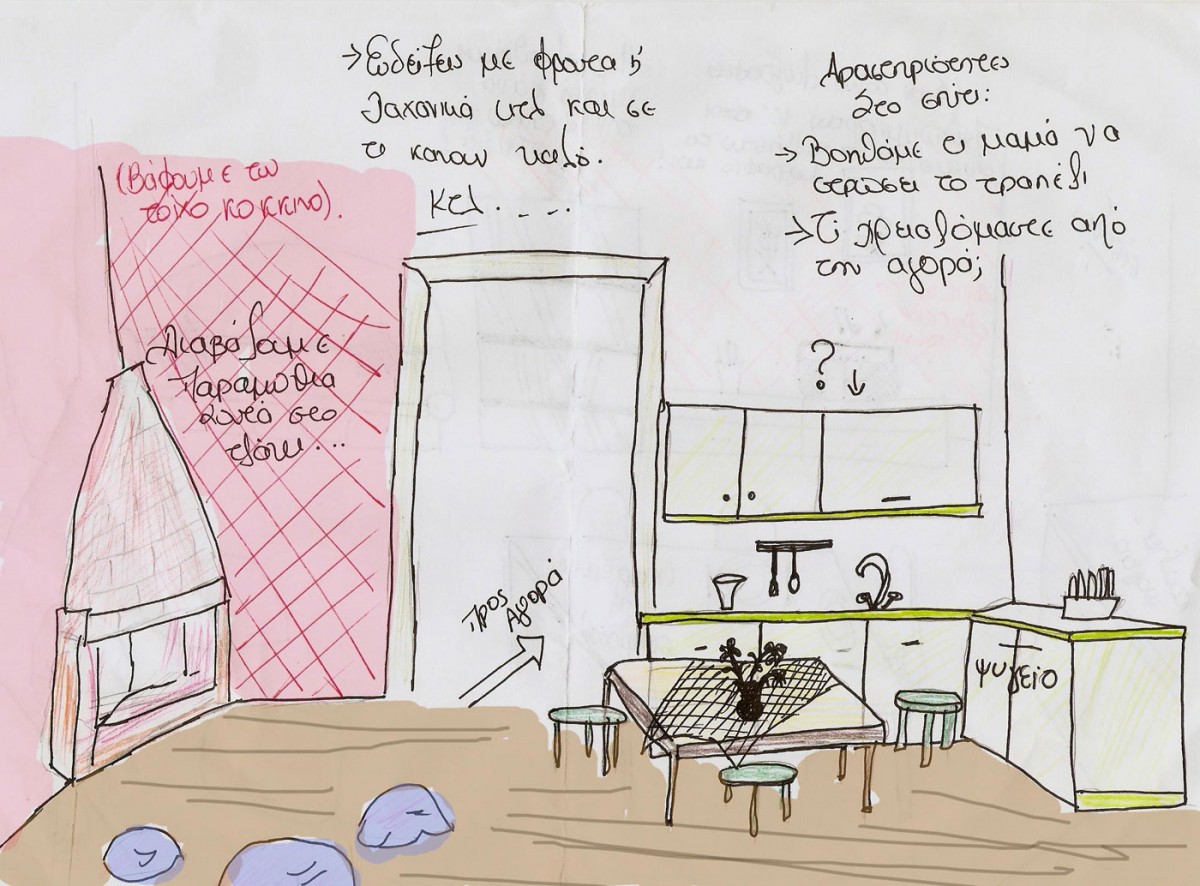 (Βάφουμε τον
τοίχο κοκκινο).
Διαβάζουμε
Παραμύθια
κοντά στο
τζάκι...
→ με φρουτα ή
λαχανικά και σε
τι κανουν καλό.
κτλ.....
Δραστηριότητες
Στο σπίτι:
→ Βοηθάμε τη μαμά να
στρώσει το τραπέζι
→ Τι χρειαζόμαστε από
την αγορά;
?
Προς
Αγορά
ψυγείο